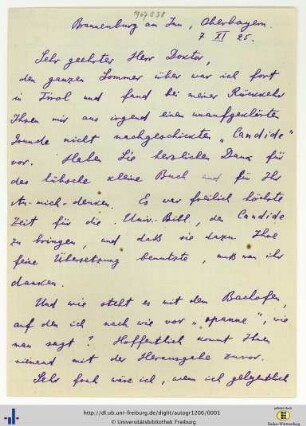 Brannenburg am Inn, Oberbayern.
7 XI 25.
Sehr geehrter Herr Doktor,
den ganzen Sommer über war ich fort
in Tirol und fand bei meiner Rückkehr
Ihnen mir aus irgend einem unaufgeklärten
Grunde nicht nachgeschickten „Candide"
vor. Haben Sie herzlichen Dank für
das hübsche kleine Buch und für Ihr
An-mich-denken. Es war freilich höchste
Zeit für die Univ. Bibl., den Candide
zu bringen, und daß sie dazu Ihre
feine Übersetzung benutzte, muß man ihr
danken.
Und wie steht es mit dem Bachofen,
auf den ich nach wie vor „spanne", wie
man sagt? Hoffentlich kommt Ihnen
niemand mit der Herausgabe zuvor.
Sehr froh wäre ich, wenn ich gelegentlich
http://dl.ub.uni-freiburg.de/diglit/autogr1296/0001
© Universitätsbibliothek Freiburg